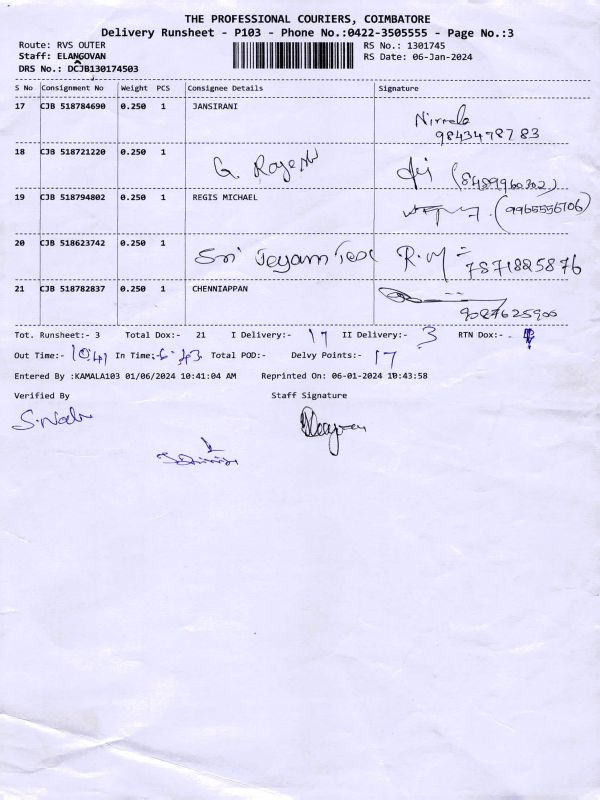 THE PROFESSIONAL COURIERS, COIMBATORE
Delivery Runsheet - P103 - Phone No.:0422-3505555 - Page No.:3
Route: RVS OUTER RS No.: 1301745
Staff: ELANGOVAN RS Date: 06-Jan-2024
DRS No.: DCJB130174503
S No Consignment No Weight PCS Consignee Details Signature
17 CJB 518784690 0.250 1 JANSIRANI Nirmala
9843478783
18 CJB 518721220 0.250 1 G. Rajesh (8489960302)
19 CJB 518794802 0.250 1 REGIS MICHAEL (9965556706)
20 CJB 518623742 0.250 1 Sri Jeyam Tex R.M
7871825876
21 CJB 518782837 0.250 1 CHENNIAPPAN
9087625900
Tot. Runsheet:- 3 Total Dox:- 21 I Delivery:- 17 II Delivery:- 3 RTN Dox:-
Out Time:- 10:41 In Time:- 6:43 Total POD:- Delvy Points:- 17
Entered By :KAMALA103 01/06/2024 10:41:04 AM Reprinted On: 06-01-2024 10:43:58
Verified By Staff Signature